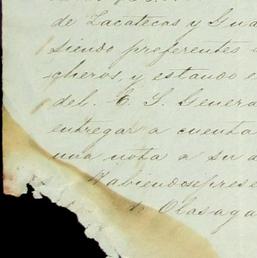 de Zacatecas y Gua
siendo preferentes
gheros, y estando e
del. E. S. Genera
entregar a cuenta
una nota a su
Habiendose prese
Olasaga